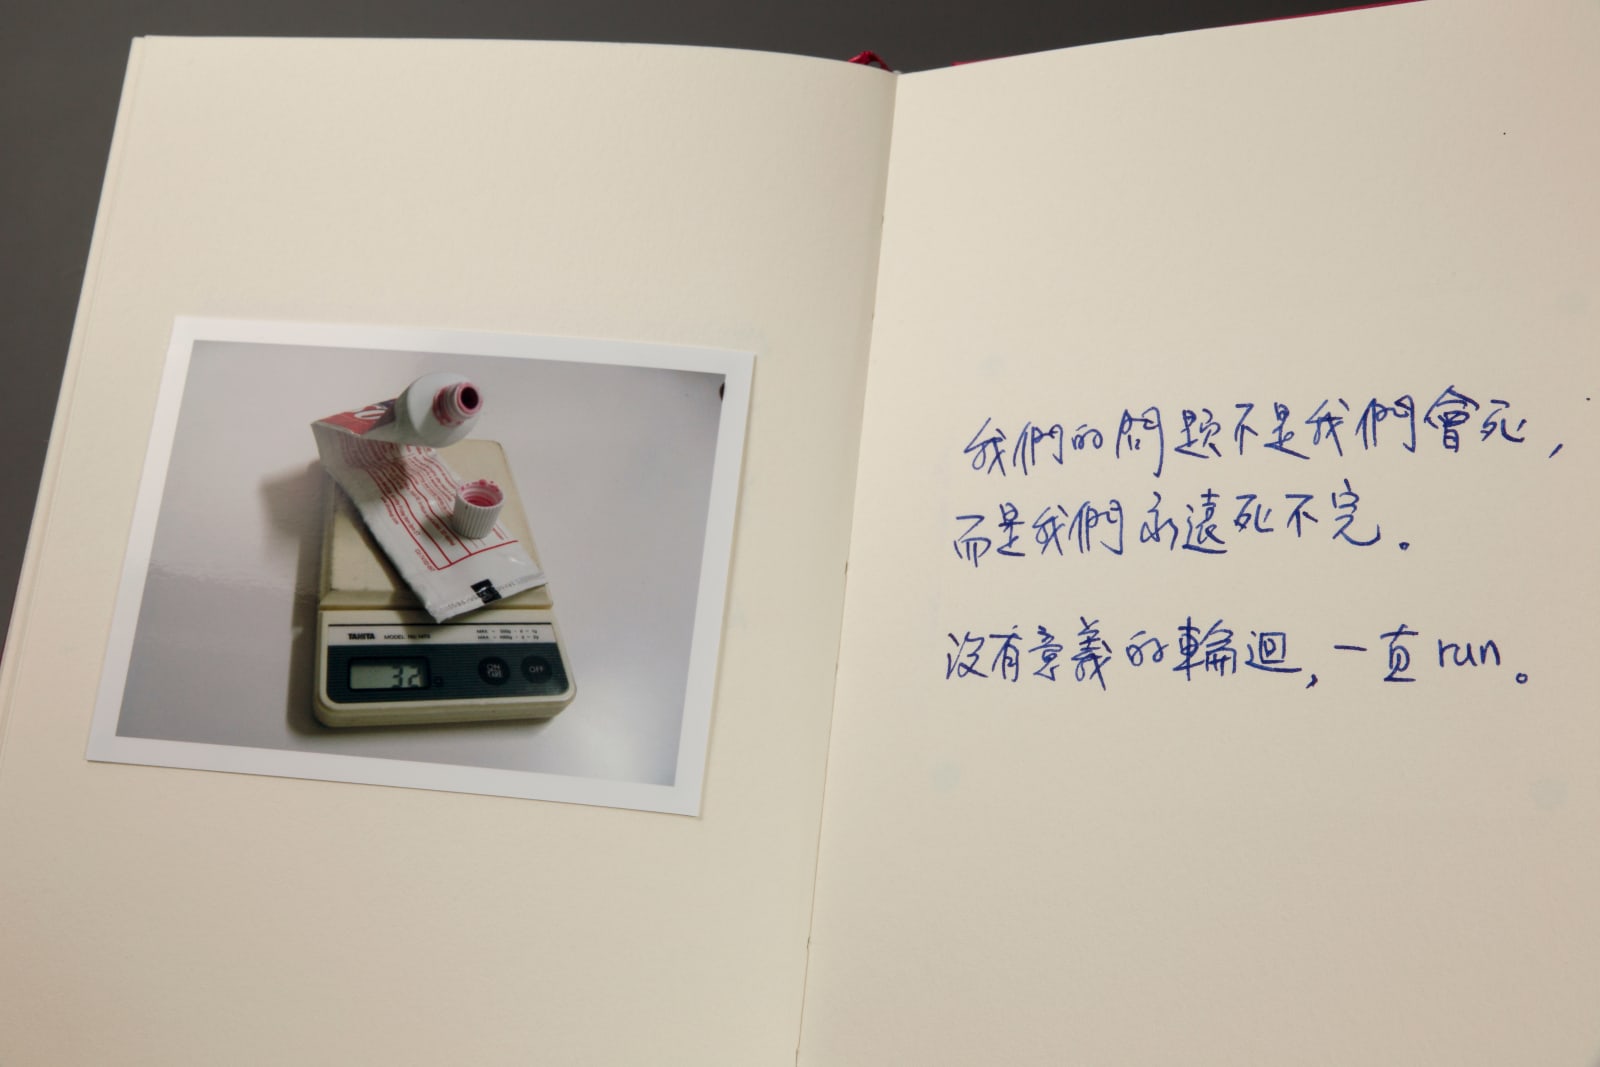 TANITA MODEL NO.
32 g
ON
OFF
我們的問題不是我們會死，
而是我們永遠死不完。
沒有意義的輪迴，一直run。